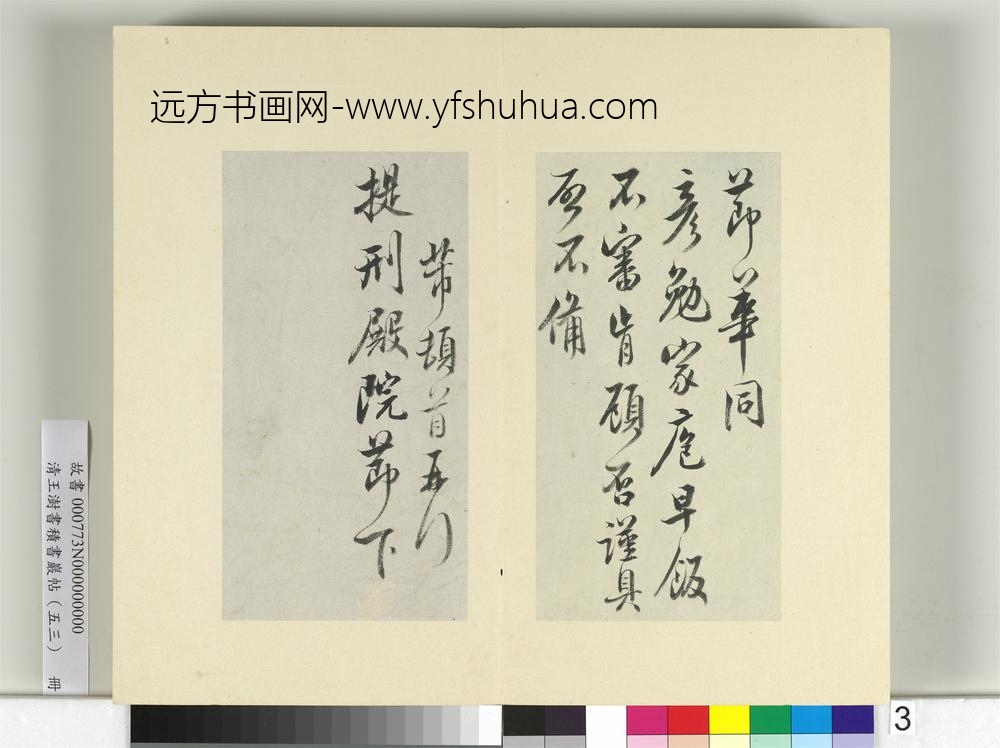 远方书画网-www.yfshuhua.com
節華同
彥勉家庖早飯
不審肯顧否謹具
啓不備
芾頓首再拜
提刑殿院節下
故書 000773N000000000
清王澍書積書巖帖(五三) 冊
3